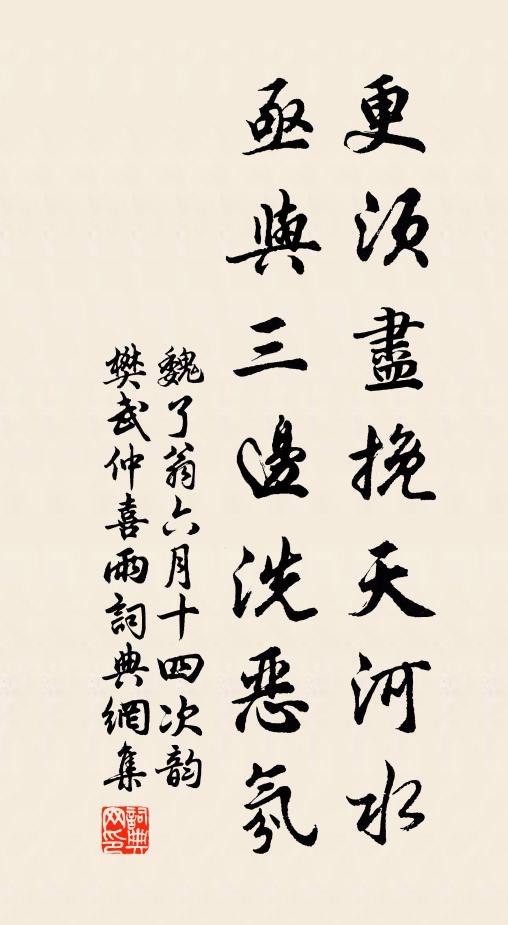 更須盡挽天河水
亟與三邊洗惡氛
魏了翁六月十四次韵
樊武仲喜雨詞典網集
詞典网印